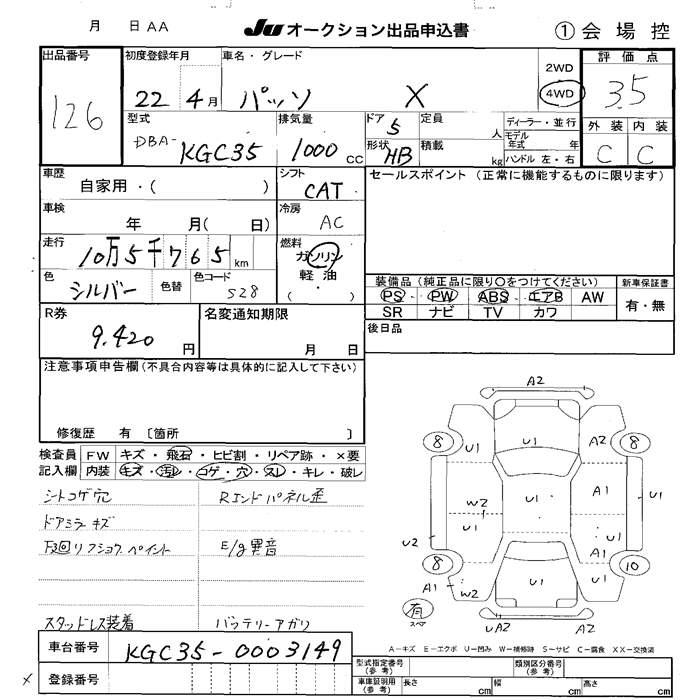 月 日 AA JU オークション出品申込書 ① 会場控
出品番号 126
初度登録年月 22年 4月
車名・グレード パッソ X
2WD
4WD
評価点 3.5
外装 C 内装 C
型式 DBA- KGC35
排気量 1000 CC
ドア 5
形状 HB
定員 人
積載 kg
ディーラー・並行
モデル年式 年
ハンドル 左・右
車歴 自家用・( )
シフト CAT
セールスポイント (正常に機能するものに限ります)
車検 年 月( 日)
冷房 AC
走行 10万5千765 km
燃料 ガソリン
軽油
( ・ )
色 シルバー 色替 色コード S28
装備品 (純正品に限り○をつけてください)
PS PW ABS エアB AW
SR ナビ TV カワ
新車保証書
有・無
R券 9,420 円
名変通知期限 月 日
後日品
注意事項申告欄 (不具合内容等は具体的に記入して下さい)
修復歴 有 〔箇所 〕
検査員記入欄
FW キズ・飛石・ヒビ割・リペア跡・×要
内装 キズ・汚レ・コゲ・穴・スレ・キレ・破レ
シートコゲ穴 Rエンドパネル歪
ドアミラーキズ
E/g異音
スタッドレス装着 バッテリーアガリ
A2
8 U1 U1 A2 8
W2 U1 A1 U1
U2 U1 U1
A1
8 10
A1 W2 U1 U1
有 スペア
UA2 A2
A-キズ E-エクボ U-凹み W-補修跡 S-サビ C-腐食 XX-交換済
車台番号 KGC35-0003149
× 登録番号
型式指定番号 (参考) 類別区分番号 (参考)
車庫証明用 (参考) 長さ cm 幅 cm 高さ cm